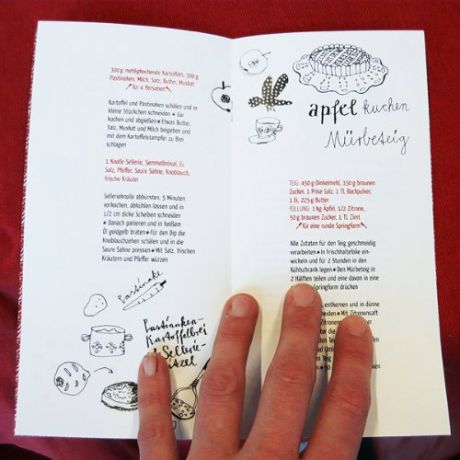 300g mehligkochende Kartoffeln, 300 g
Pastinaken, Milch, Salz, Butter, Muskat
für 4 Personen
Kartoffel und Pastinaken schälen und in
kleine Stückchen schneiden • Gar
kochen und abgießen • Etwas Butter,
Salz, Muskat und Milch beigeben und
mit dem Kartoffelstampfer zu Brei
schlagen
1 Knolle Sellerie, Semmelbrösel, Ei,
Salz, Pfeffer, Saure Sahne, Knoblauch,
frische Kräuter
Sellerieknolle abbürsten, 5 Minuten
vorkochen, abkühlen lassen und in
1/2 cm dicke Scheiben schneiden
• Danach panieren und in heißem
Öl goldgelb braten • Für den Dip die
Knoblauchzehen schälen und in die
Saure Sahne pressen • Mit Salz, frischen
Kräutern und Pfeffer würzen
Pastinake
Pastinaken-
Kartoffelbrei
Sellerie-
apfelkuchen
Mürbeteig
TEIG: 450 g Dinkelmehl, 150 g braunen
Zucker, 1 Prise Salz, 1 TL Backpulver,
1 Ei, 225 g Butter
FÜLLUNG: 1 kg Äpfel, 1/2 Zitrone,
50 g braunen Zucker, 1 TL Zimt
für eine runde Springform
Alle Zutaten für den Teig geschmeidig
verarbeiten • In Frischhaltefolie ein-
wickeln und für 2 Stunden in den
Kühlschrank legen • Den Mürbeteig in
2 Hälften teilen und eine davon in eine
Springform drücken
entkernen und in dünne
schneiden • Mit Zitronensaft